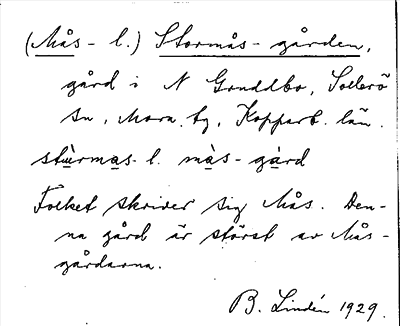 (Mås- l.) Stormås-gården,
gård i N Gruddbo, Sollerö
sn, Mora tg, Kopparb. län.
stùrmas- l. mås-gård
Folket skriver sig Mås. Den-
na gård är störst av Mås-
gårdarna.
B. Lindén 1929.